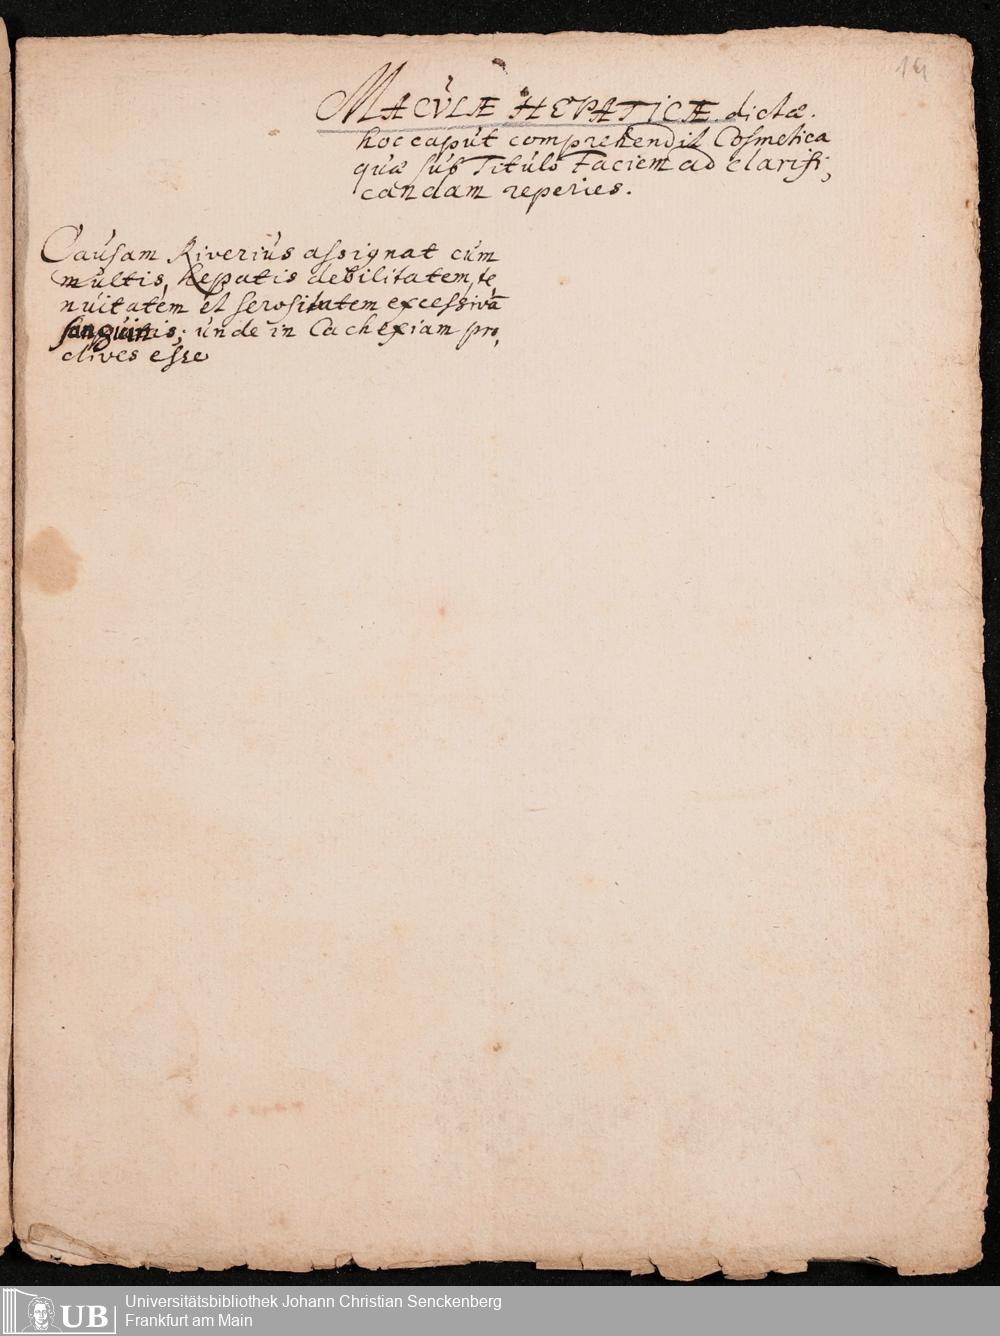 19
MACVLÆ HEPATICÆ dictæ.
hoc caput comprehendit Cosmetica
quæ sub Titulo Faciem ad clarifi,
candam reperies.
Causam Riverius assignat cum
multis, hepatis debilitatem, te,
nuitatem et serositatem excessivā
sanguinis; unde in Cachexiam pro,
clives esse
UB
Universitätsbibliothek Johann Christian Senckenberg
Frankfurt am Main